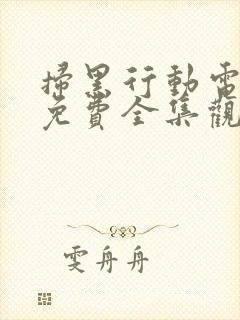 掃黑行動電
免費全集觀
雯舟舟